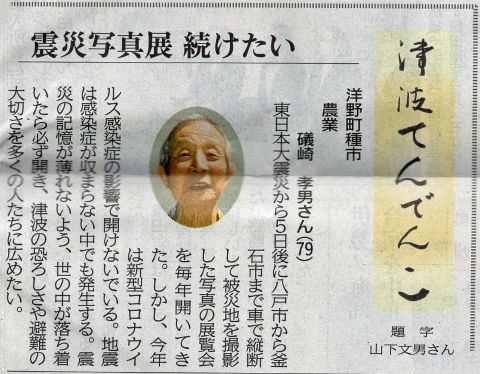 震災写真展 続けたい
津波てんでんこ
題字
山下文男さん
洋野町種市
農業
磯崎 孝男さん(79)
東日本大震災から5日後に八戸市から釜
石市まで車で縦断
して被災地を撮影
した写真の展覧会
を毎年開いてき
た。しかし、今年
は新型コロナウイ
ルス感染症の影響で開けないでいる。地震
は感染症が収まらない中でも発生する。震
災の記憶が薄れないよう、世の中が落ち着
いたら必ず開き、津波の恐ろしさや避難の
大切さを多くの人たちに広めたい。